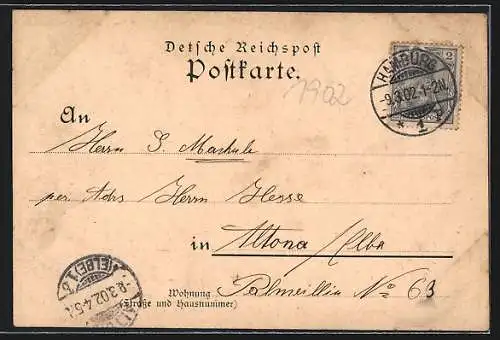 Detsche Reichspost
Postkarte.
2
HAMBURG
-9.3.02.1-2N.
* 1 *
1902
An
Herrn S.
per Adrs Herrn Hesse
in Altona / Elbe
(ELBE) 1
-9.3.02.4-5
Wohnung Palmaille No 63
(Straße und Hausnummer)